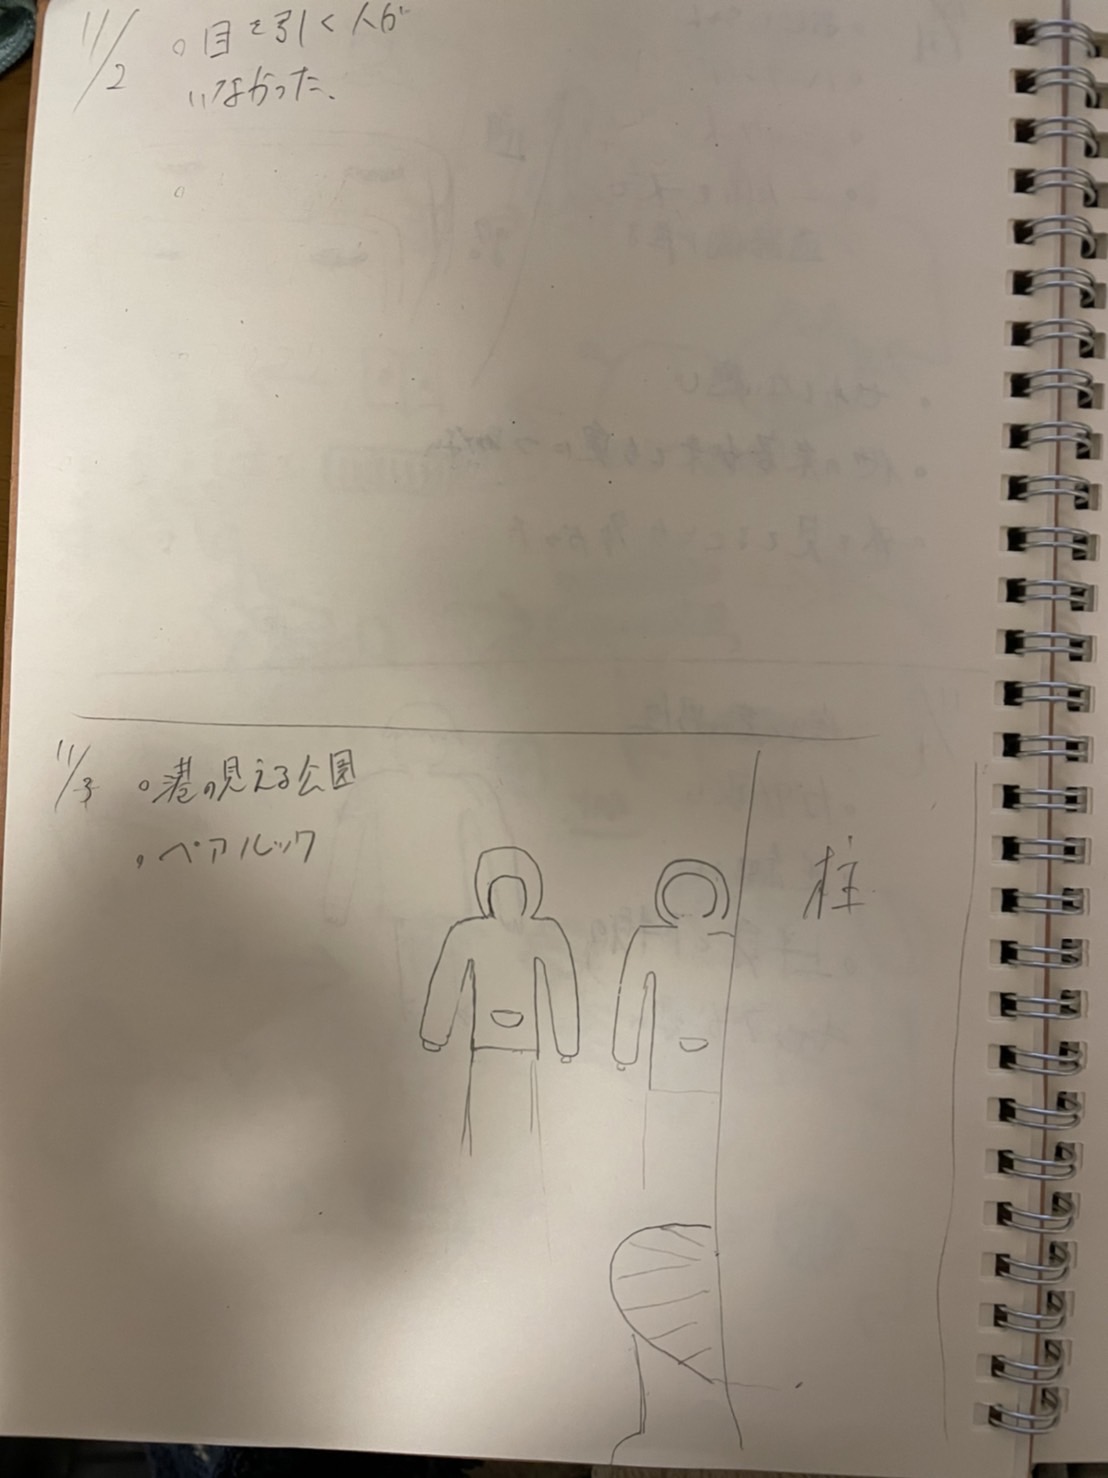 11/2 ○目を引く人が
いなかった、
○
11/3 ○港の見える公園
○ペアルック
柱